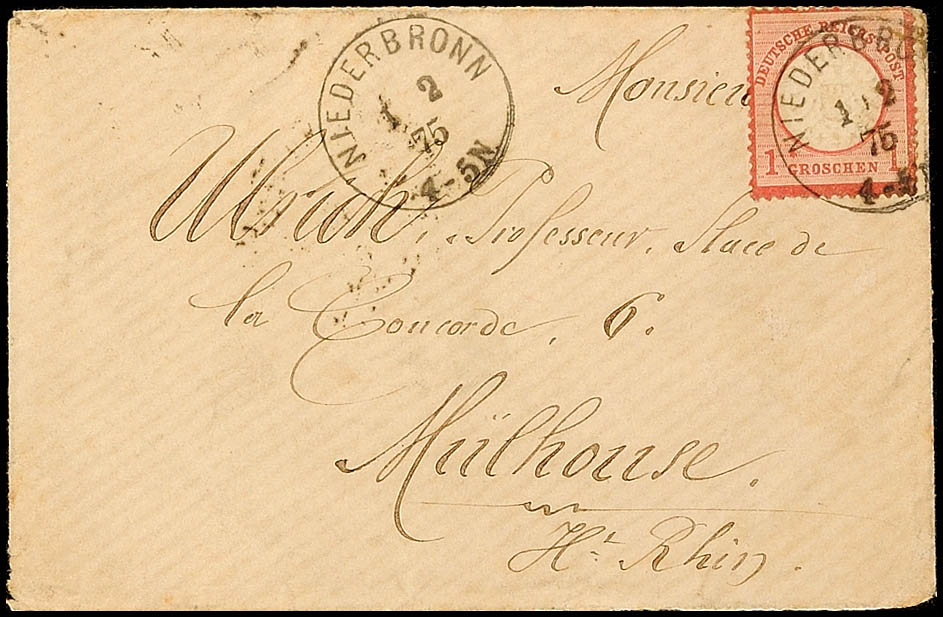 NIEDERBRONN
1 2
75
4-5N
DEUTSCHE REICHS-POST
1 GROSCHEN 1
NIEDERBRO
1 2
75
4-5
Monsieu
Ulrich, Professeur, Place de
la Concorde, 6.
Mülhouse.
Ht Rhin.